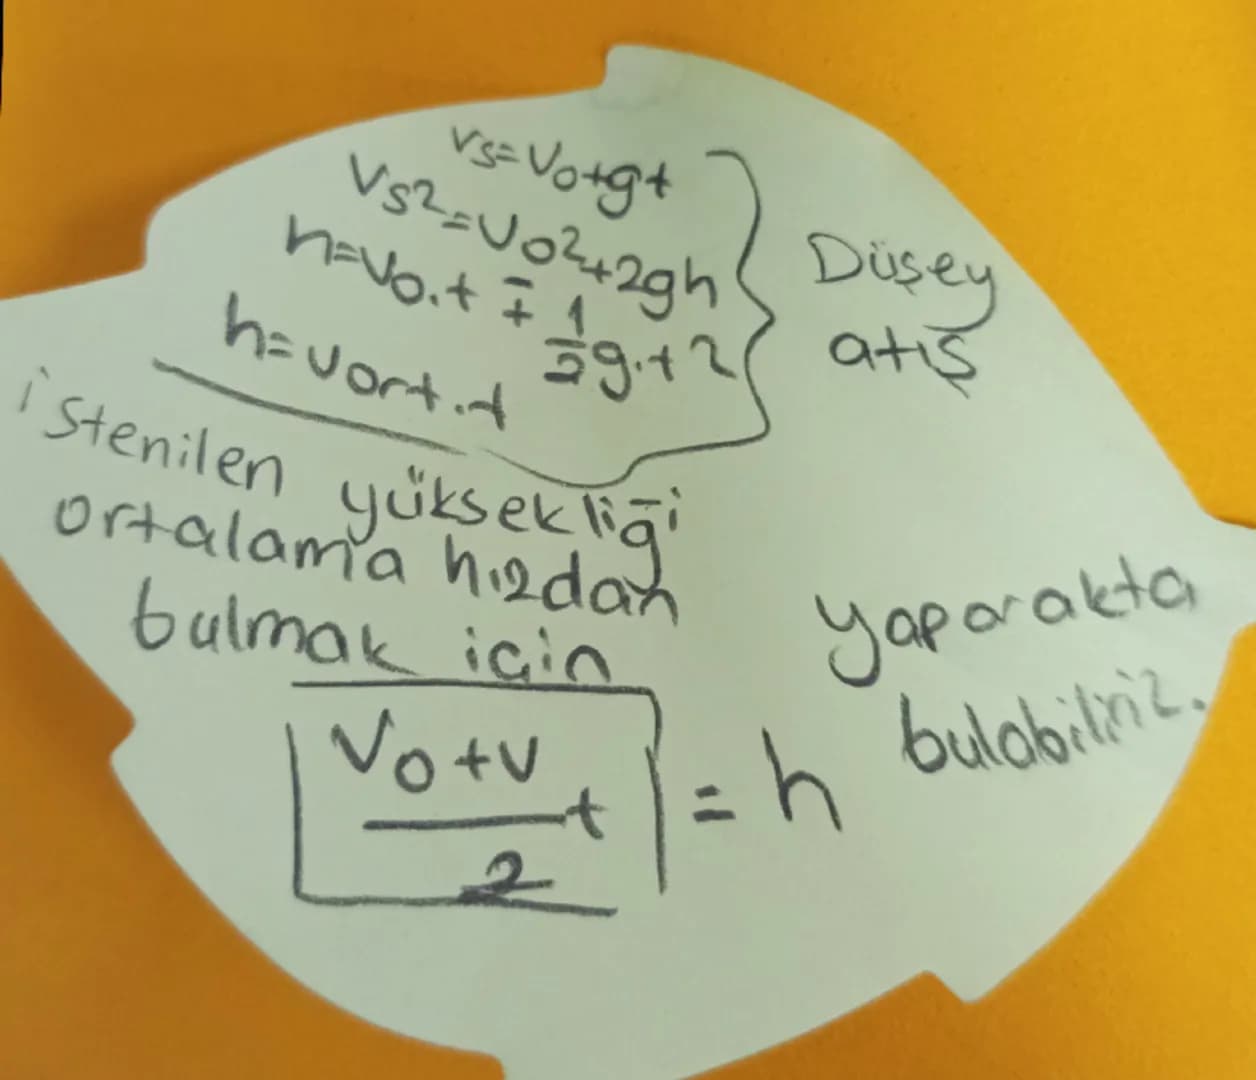 Vs=Vo+gt
Vs²=Vo²+2gh
h=Vo.t ∓ 1/2 g.t²
h=Vort.t
Düşey
atış
istenilen yüksekliği
ortalama hızdan
bulmak için
Vo+V/2 t = h
yaparakta
bulabiliriz.